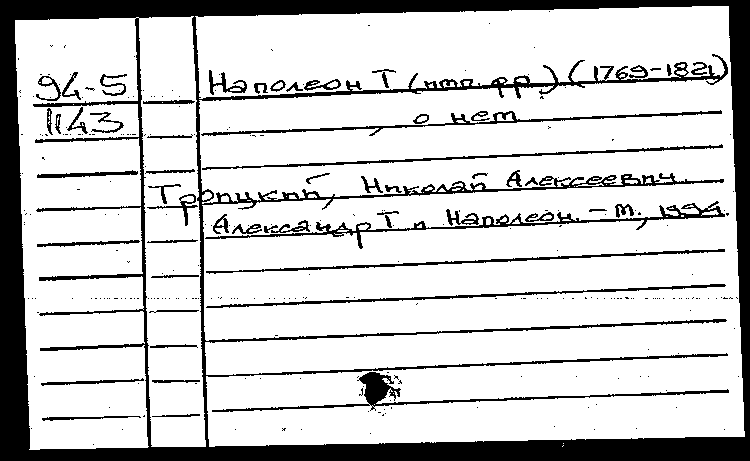 94-5 Наполеон I (имп. фр.) (1769-1821)
1143 , о нем
Троицкий, Николай Алексеевич.
Александр I и Наполеон. – М., 1994.